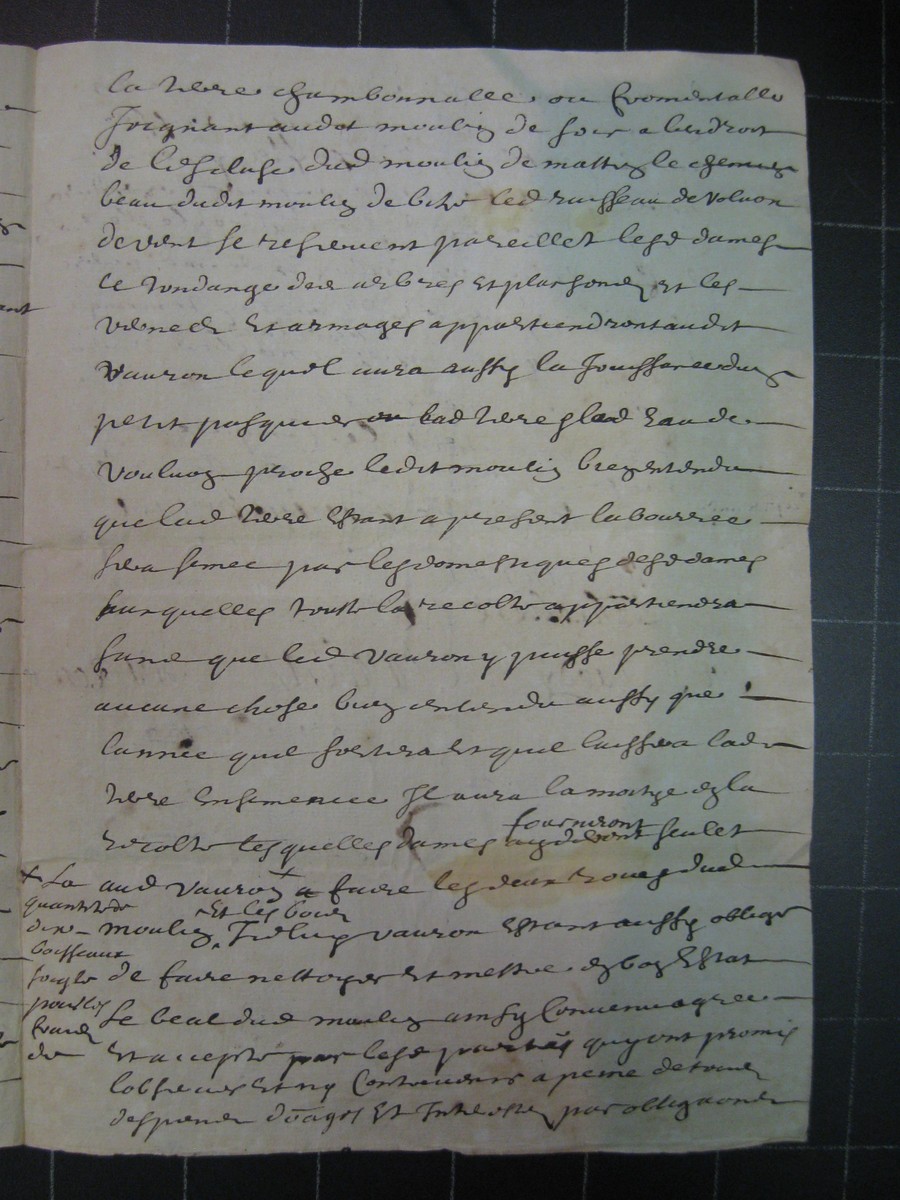 la terre chambonnalle ou fromentalle
Joignant audit moulin de soir a l'endroit
de l'escluse dud moulin de mattin le chemin
beau dudit moulin de bize led ruisseau de Voluon
de vent se reservent pareillet lesd dames
le tondange des arbres et plassons et les
et armages appartiendront audit
Vauron lequel aura aussy la Jouissance du
petit pasquier ou lad terre lad eau de
Vouluon proche ledit moulin bien entendu
que lad terre estant apresent labourree
sera semee par les domestiques desd dames
auxquelles toutte la recolte appartiendra
sans que led Vauron y puisse prendre
aucune chose bien entendu aussy que
lannee quil sortira et quil laissera lad
terre ensemencee Il aura la moitye en la
recolte lesquelles dames fourniront seulet
aud Vauron + a faire les deux roues dud
moulin et les bois Icelluy vauron estant aussy obligé
de faire nettoyer et mettre en bon estat
le beal dud moulin ainsy Convenu agree
et accepte par lesd parties quy ont promis
lobserver et ny Contrevenir a peine de tous
despens domages et Interests par obligaon de
+ La
quantite de
dix
boisseaux
seigle
pour les
frais
de